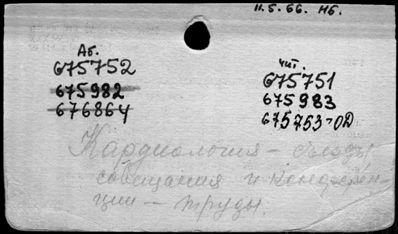 11.5.66. Нб.
Аб.
675752
675982
676864
чит.
675751
675983
675753-ОД
Кардиология - съезды,
совещания и конферен-
ции - труды.